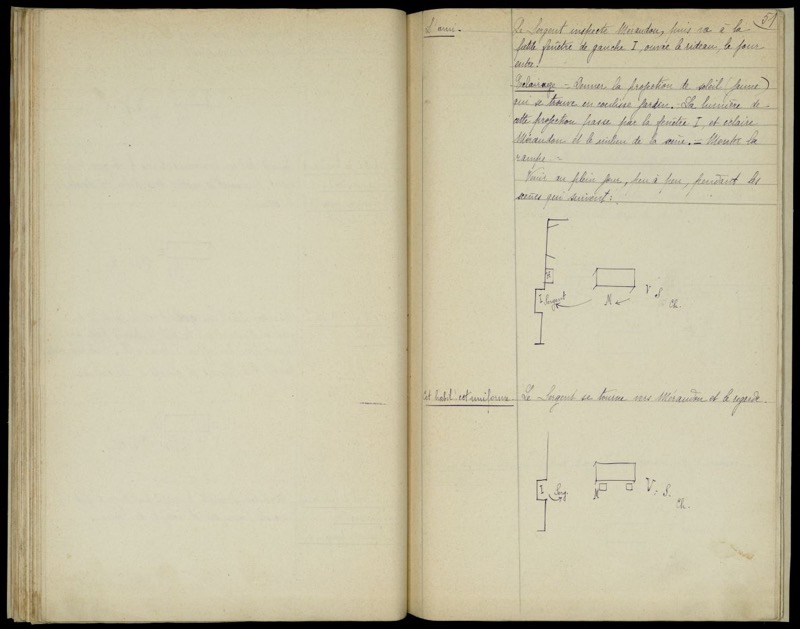 51
L'ami.
Le Sergent inspecte Mérandon, puis va à la
petite fenêtre de gauche I, ouvre le rideau, le jour
entre.
Eclairage - Donner la projection de soleil (jaune)
qui se trouve en coulisse jardin. La lumière de
cette projection passe par la fenêtre I, et eclaire
Mérandon et le milieu de la scène. - Monter la
rampe. -
Venir au plein jour, peu à peu, pendant les
scènes qui suivent:
I Sergent M V. S. Ch.
Cet habit! cet uniforme. Le Sergent se tourne vers Mérandon et le regarde.
I Serg. M V. S. Ch.